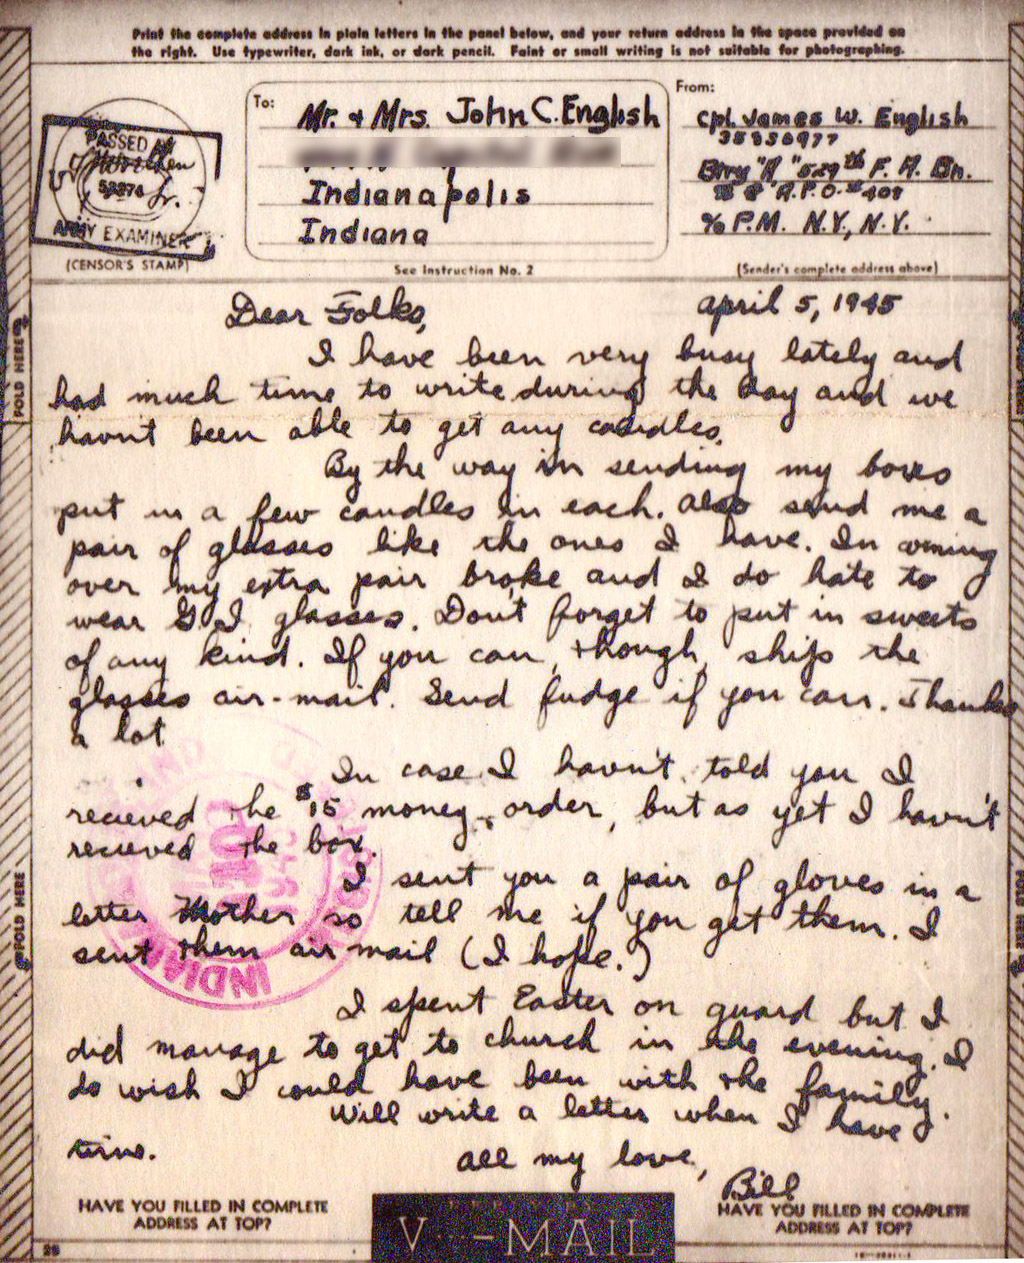 Print the complete address in plain letters in the panel below, and your return address in the space provided on
the right. Use typewriter, dark ink, or dark pencil. Faint or small writing is not suitable for photographing.
To:
Mr. + Mrs. John C. English
Indianapolis
Indiana
From:
Cpl. James W. English
35836977
Btry "A" 529th F. A. Bn.
A.P.O. # 408
c/o P.M. N.Y., N.Y.
PASSED BY
ARMY EXAMINER
(CENSOR'S STAMP)
See Instruction No. 2
(Sender's complete address above)
FOLD HERE
Dear Folks,
April 5, 1945
I have been very busy lately and
had much time to write during the day and we
havn't been able to get any candles.
By the way in sending my boxes
put in a few candles in each. Also send me a
pair of glasses like the ones I have. In coming
over my extra pair broke and I do hate to
wear G I glasses. Don't forget to put in sweets
of any kind. If you can, though, ship the
glasses air-mail. Send fudge if you can. Thanks
a lot
In case I havn't told you I
recieved the $15 money order, but as yet I havn't
recieved the box.
I sent you a pair of gloves in a
letter Mother so tell me if you get them. I
sent them air mail (I hope.)
I spent Easter on guard but I
did manage to get to church in the evening. I
do wish I could have been with the family.
Will write a letter when I have
time.
All my love,
Bill
FOLD HERE
FOLD HERE
HAVE YOU FILLED IN COMPLETE
ADDRESS AT TOP?
V···—MAIL
HAVE YOU FILLED IN COMPLETE
ADDRESS AT TOP?